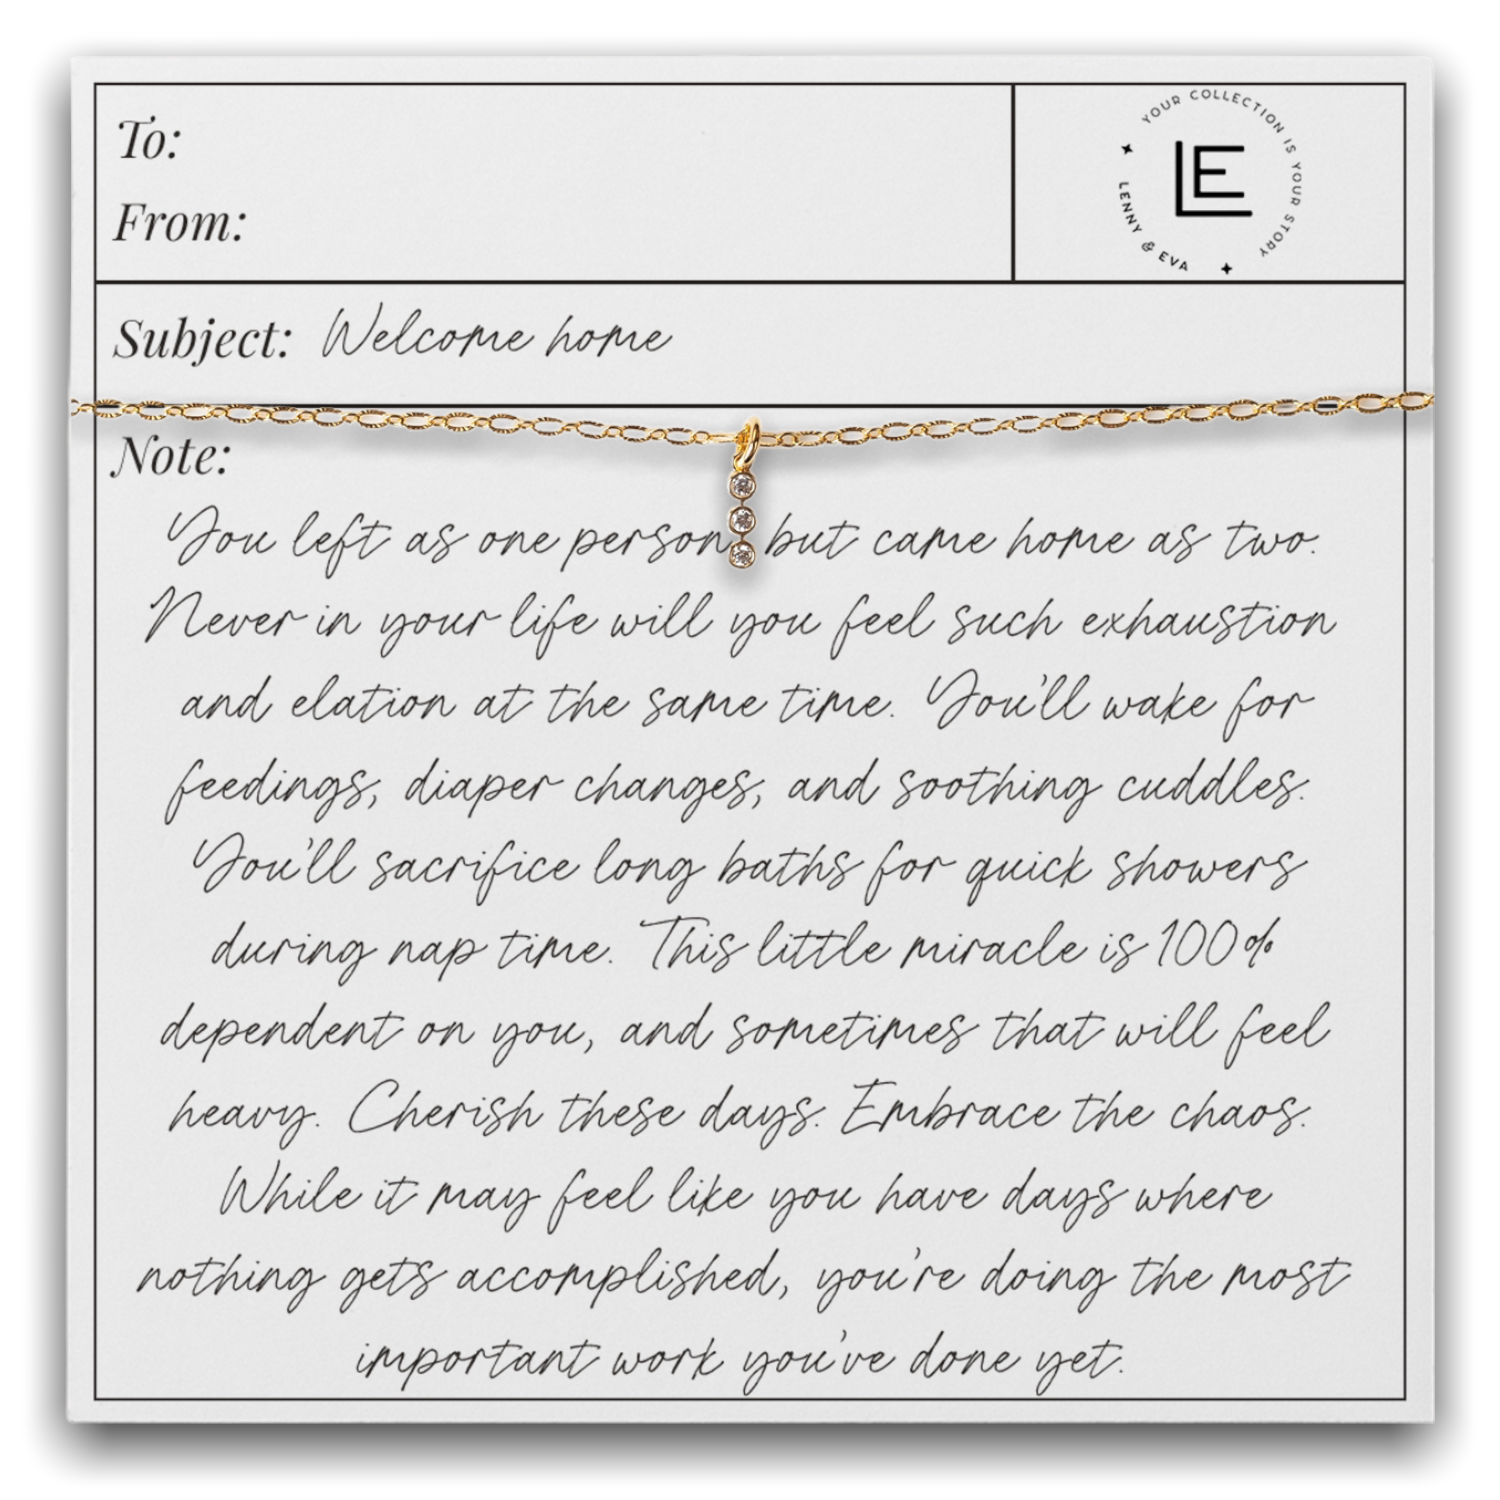 To:
From:
YOUR COLLECTION IS YOUR STORY
LE
LENNY & EVA
Subject: Welcome home
Note:
You left as one person, but came home as two.
Never in your life will you feel such exhaustion
and elation at the same time. You'll wake for
feedings, diaper changes, and soothing cuddles.
You'll sacrifice long baths for quick showers
during nap time. This little miracle is 100%
dependent on you, and sometimes that will feel
heavy. Cherish these days. Embrace the chaos.
While it may feel like you have days where
nothing gets accomplished, you're doing the most
important work you've done yet.